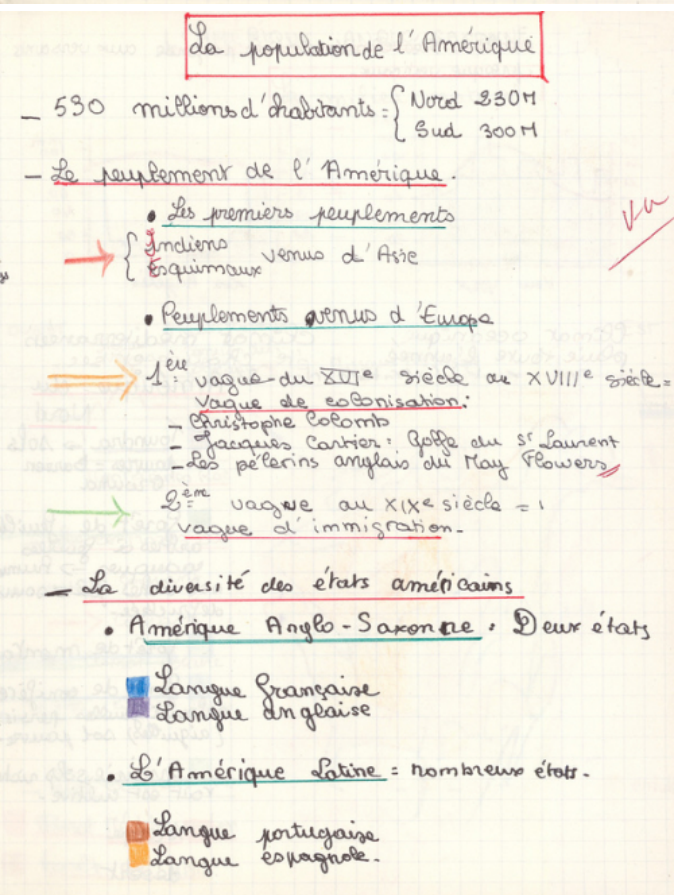 La population de l'Amérique
- 530 millions d'habitants = { Nord 230M
Sud 300M
- Le peuplement de l'Amérique.
• Les premiers peuplements
→ { Indiens
Esquimaux venus d'Asie
Vu
• Peuplements venus d'Europe
⇒ 1èr vague du XVIIe siècle au XVIIIe siècle =
Vague de colonisation:
- Christophe Colomb
- Jacques Cartier: Golfe du St Laurent
- Les pélerins anglais du May Flowers
→ 2ème vague au XIXe siècle =
Vague d'immigration.
- La diversité des états américains
• Amérique Anglo-Saxonne : Deux états
Langue française
Langue anglaise
• L'Amérique Latine = nombreux états.
Langue portugaise
Langue espagnole.